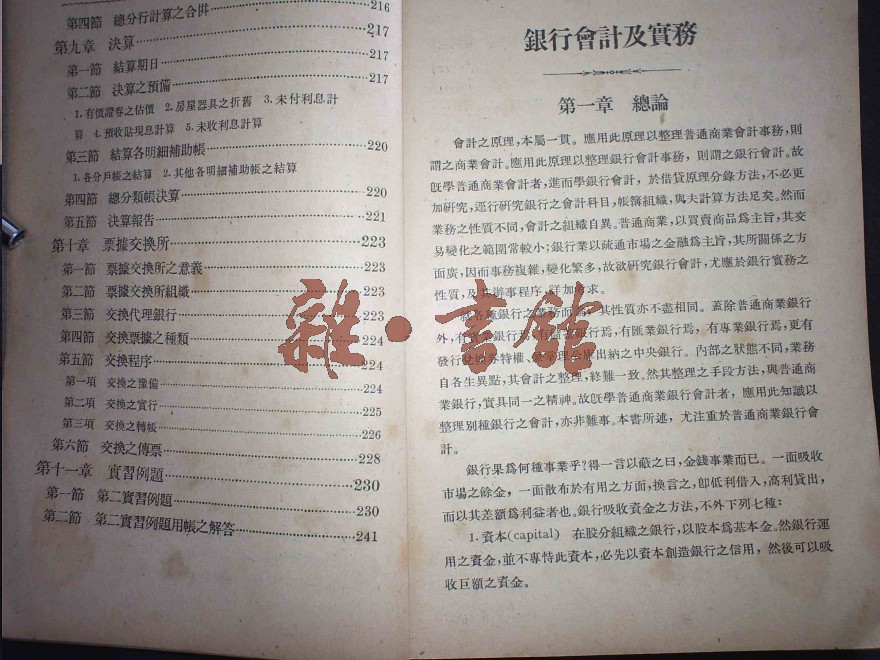 第四節 總分行計算之合併 216
第九章 決算 217
第一節 結算期日 217
第二節 決算之預備 217
1.有價證券之估價 2.房屋器具之折舊 3.未付利息計
算 4.預收貼現息計算 5.未收利息計算
第三節 結算各明細補助帳 220
1.各分戶帳之結算 2.其他各明細補助帳之結算
第四節 總分類帳決算 220
第五節 決算報告 221
第十章 票據交換所 223
第一節 票據交換所之意義 223
第二節 票據交換所組織 223
第三節 交換代理銀行 223
第四節 交換票據之種類 224
第五節 交換程序 224
第一項 交換之豫備 224
第二項 交換之實行 225
第三項 交換之轉帳 226
第六節 交換之傳票 228
第十一章 實習例題 230
第一節 第二實習例題 230
第二節 第二實習例題用帳之解答 241
銀行會計及實務
第一章 總論
會計之原理，本屬一貫。應用此原理以整理普通商業會計事務，則
謂之商業會計。應用此原理以整理銀行會計事務，則謂之銀行會計。故
旣學普通商業會計者，進而學銀行會計，於借貸原理分錄方法，不必更
加研究，逕行研究銀行之會計科目，帳簿組織，與夫計算方法足矣。然而
業務之性質不同，會計之組織自異。普通商業，以買賣商品爲主旨，其交
易變化之範圍常較小；銀行業以疏通市場之金融爲主旨，其所關係之方
面廣，因而事務複雜，變化繁多，故欲研究銀行會計，尤應於銀行實務之
性質，及其辦事程序，詳加研求。
就各種銀行之業務而論，其性質亦不盡相同。蓋除普通商業銀行
外，有實業銀行焉，有儲蓄銀行焉，有匯業銀行焉，有專業銀行焉，更有
發行兌換券特權、管理公庫出納之中央銀行。內部之狀態不同，業務
自各生異點，其會計之整理，終難一致。然其整理之手段方法，與普通商
業銀行，實具同一之精神。故旣學普通商業銀行會計者，應用此知識以
整理別種銀行之會計，亦非難事。本書所述，尤注重於普通商業銀行會
計。
銀行果爲何種事業乎？得一言以蔽之曰，金錢事業而已。一面吸收
市場之餘金，一面散布於有用之方面，換言之，卽低利借入，高利貸出，
而以其差額爲利益者也。銀行吸收資金之方法，不外下列七種：
1.資本(capital) 在股分組織之銀行，以股本爲基本金。然銀行運
用之資金，並不專恃此資本，必先以資本創造銀行之信用，然後可以吸
收巨額之資金。
雜·書館